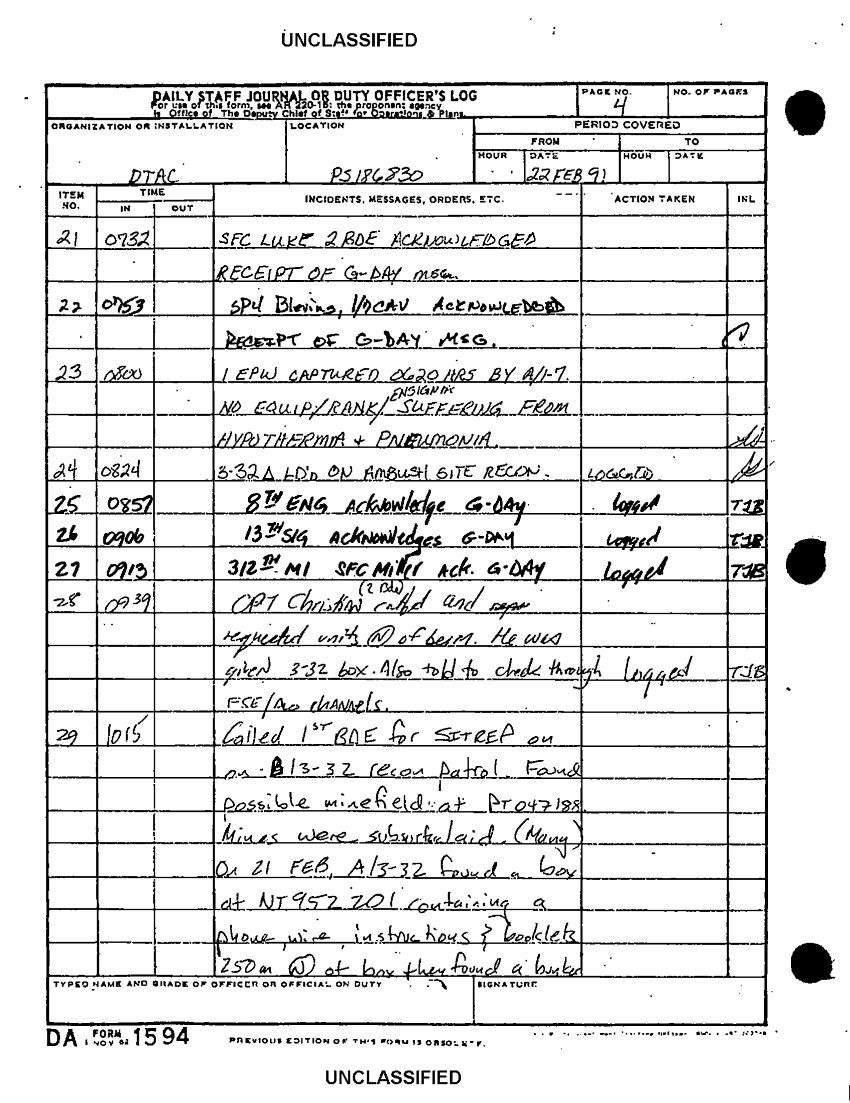 UNCLASSIFIED
DAILY STAFF JOURNAL OR DUTY OFFICER'S LOG
For use of this form, see AR 220-15; the proponent agency
is Office of The Deputy Chief of Staff for Operations & Plans.
PAGE NO.
4
NO. OF PAGES
ORGANIZATION OR INSTALLATION
DTAC
LOCATION
PS186830
PERIOD COVERED
FROM
TO
HOUR
DATE
22 FEB 91
HOUR
DATE
ITEM NO.
TIME
IN
OUT
INCIDENTS, MESSAGES, ORDERS, ETC.
ACTION TAKEN
INL
21 0732 SFC LUKE 2 BDE ACKNOWLEDGED
RECEIPT OF G-DAY MSG.
22 0753 SP4 Blevins, 1/7CAV ACKNOWLEDGED
RECEIPT OF G-DAY MSG.
23 0800 1 EPW CAPTURED 0620 HRS BY A/1-7.
NO EQUIP/RANK/ SUFFERING FROM
HYPOTHERMIA + PNEUMONIA.
24 0824 3-32 LD'D ON AMBUSH SITE RECON. LOGGED
25 0857 8TH ENG Acknowledge G-DAY logged TJB
26 0906 13TH SIG Acknowledges G-DAY logged TJB
27 0913 312TH MI SFC Miller Ack. G-DAY Logged TJB
28 0939 CPT Christian (2 Bde) called and
requested units (N) of berm. He was
given 3-32 box. Also told to check through Logged TJB
FSE/ channels.
29 1015 Called 1ST BDE for SITREP on
on B/3-32 recon patrol. Found
possible minefield at PT047188
Mines were laid. (Many)
On 21 FEB, A/3-32 found a box
at NT952201 containing a
phone, wire, instructions & booklets
250m (N) of box they found a bunker
TYPED NAME AND GRADE OF OFFICER OR OFFICIAL ON DUTY
SIGNATURE
DA FORM 1 NOV 62 1594
PREVIOUS EDITION OF THIS FORM IS OBSOLETE.
UNCLASSIFIED